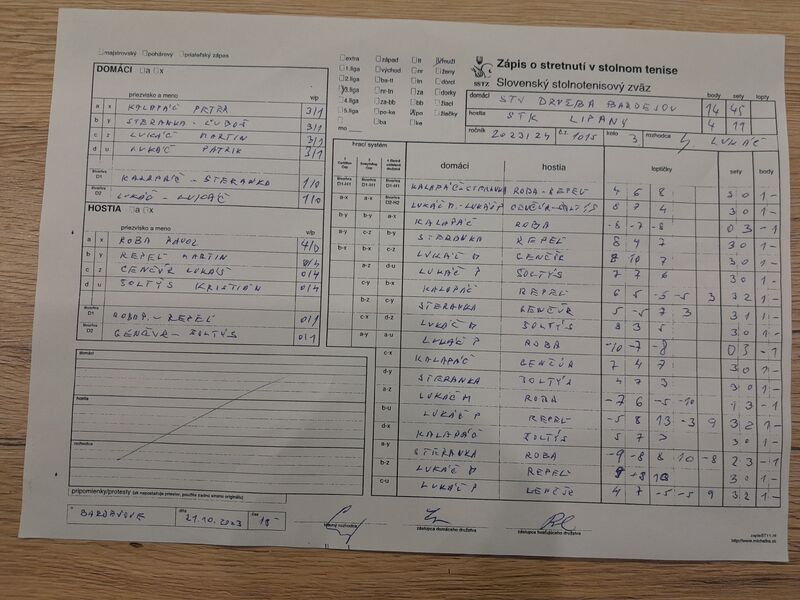 majstrovský pohárový priateľský zápas
DOMÁCI a x
priezvisko a meno v/p
a x KALAPÁČ PETER 3/1
b y ŠTERANKA ĽUBOŠ 3/1
c z LUKÁČ MARTIN 3/1
d u LUKÁČ PATRIK 3/1
D1 KALAPÁČ - ŠTERANKA 1/0
D2 LUKÁČ - LUKÁČ 1/0
HOSTIA a x
priezvisko a meno v/p
a x ROBA PAVOL 4/0
b y REPEL MARTIN 0/4
c z CENCÚR LUKÁŠ 0/4
d u ŠOLTÝS KRISTIÁN 0/4
D1 ROBA P. - REPEL 0/1
D2 CENCÚR - ŠOLTÝS 0/1
domáci
hostia
rozhodca
pripomienky/protesty (ak nepostačuje priestor, použiť zadnú stranu originálu)
BARDEJOV dňa 21.10.2023 čas 18
hlavný rozhodca zástupca domáceho družstva zástupca hosťujúceho družstva
extra západ tt muži
1.liga východ nr ženy
2.liga ba-tt tn dorci
3.liga nr-tn za dorky
4.liga za-bb bb žiaci
5.liga po-ke po žiačky
mo ba ke
SSTZ
Zápis o stretnutí v stolnom tenise
Slovenský stolnotenisový zväz
body sety lopty
domáci STJ DRUŽBA BARDEJOV 14 45
hostia STK LIPANY 4 11
ročník 2023/24 č.z. 1015 kolo 3 rozhodca LUKÁČ
hrací systém domáci hostia loptičky sety body
KALAPÁČ - ŠTERANKA ROBA - REPEL 4 6 8 3 0 1 -
LUKÁČ M. - LUKÁČ P. CENCÚR - ŠOLTÝS 8 7 4 3 0 1 -
KALAPÁČ ROBA -8 -7 -8 0 3 - 1
ŠTERANKA REPEL 8 4 7 3 0 1 -
LUKÁČ M CENCÚR 8 10 7 3 0 1 -
LUKÁČ P ŠOLTÝS 7 7 6 3 0 1 -
KALAPÁČ REPEL 6 5 -5 -5 3 3 2 1 -
ŠTERANKA CENCÚR 5 -5 7 3 3 1 1 -
LUKÁČ M ŠOLTÝS 8 3 5 3 0 1 -
LUKÁČ P ROBA -10 -7 -8 0 3 - 1
KALAPÁČ CENCÚR 7 4 7 3 0 1 -
ŠTERANKA ŠOLTÝS 4 7 3 3 0 1 -
LUKÁČ M ROBA -7 6 -5 -10 1 3 - 1
LUKÁČ P REPEL -5 8 13 -3 9 3 2 1 -
KALAPÁČ ŠOLTÝS 5 7 3 0 1 -
ŠTERANKA ROBA -9 -8 8 10 -8 2 3 - 1
LUKÁČ M REPEL 3 0 1 -
LUKÁČ P 4 7 -5 -5 9 3 2 1 -
http://www.michalka.sk